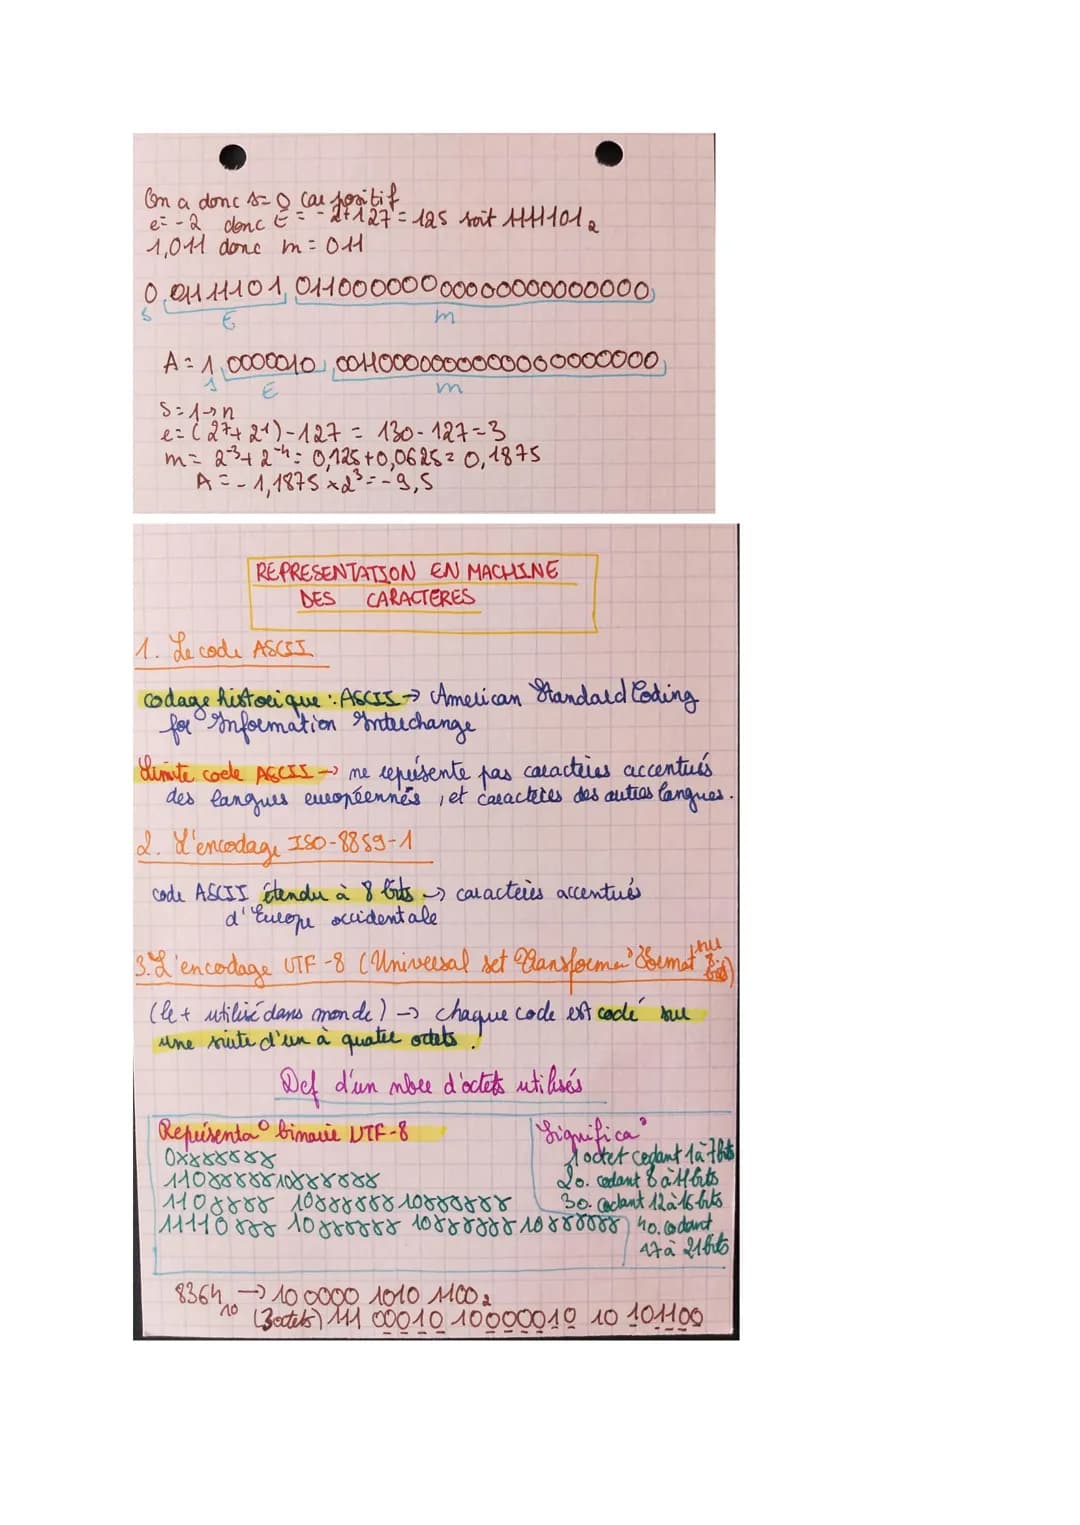 On a donc s=0 car positif
e=-2 donc E = -2+127 = 125 soit 1111101₂
1,011 donc m = 011
0 01111101 01100000000000000000000
s E m
A = 1 0000010 00110000000000000000000
s E m
S=1→n
e=(2⁷+2¹)-127 = 130-127=3
m= 2⁻³+2⁻⁴= 0,125+0,0625= 0,1875
A = -1,1875 ×2³=-9,5
REPRESENTATION EN MACHINE
DES CARACTERES
1. Le code ASCII
codage historique : ASCII → American Standard Coding
for Information Interchange
Limite code ASCII → ne représente pas caractères accentués
des langues européennes, et caractères des autres langues.
2. L'encodage ISO-8859-1
code ASCII étendu à 8 bits → caractères accentués
d'Europe occidentale
3. L'encodage UTF-8 (Universal set Transforma° Format sur 8 bits)
(le + utilisé dans monde) → chaque code est codé sur
une suite d'un à quatre octets.
Def d'un nbre d'octets utilisés
Représenta° binaire UTF-8 Significa°
0xxxxxxx 1 octet codant 1 à 7 bits
110xxxxx10xxxxxx 2o. codant 8 à 11 bits
110xxxx 10xxxxxx 10xxxxxx 3o. codant 12 à 16 bits
11110xxx 10xxxxxx 10xxxxxx 10xxxxxx 4o. codant
17 à 21 bits
8364₁₀ → 10 0000 1010 1100₂
(3octets) 111 00010 10000010 10 101100